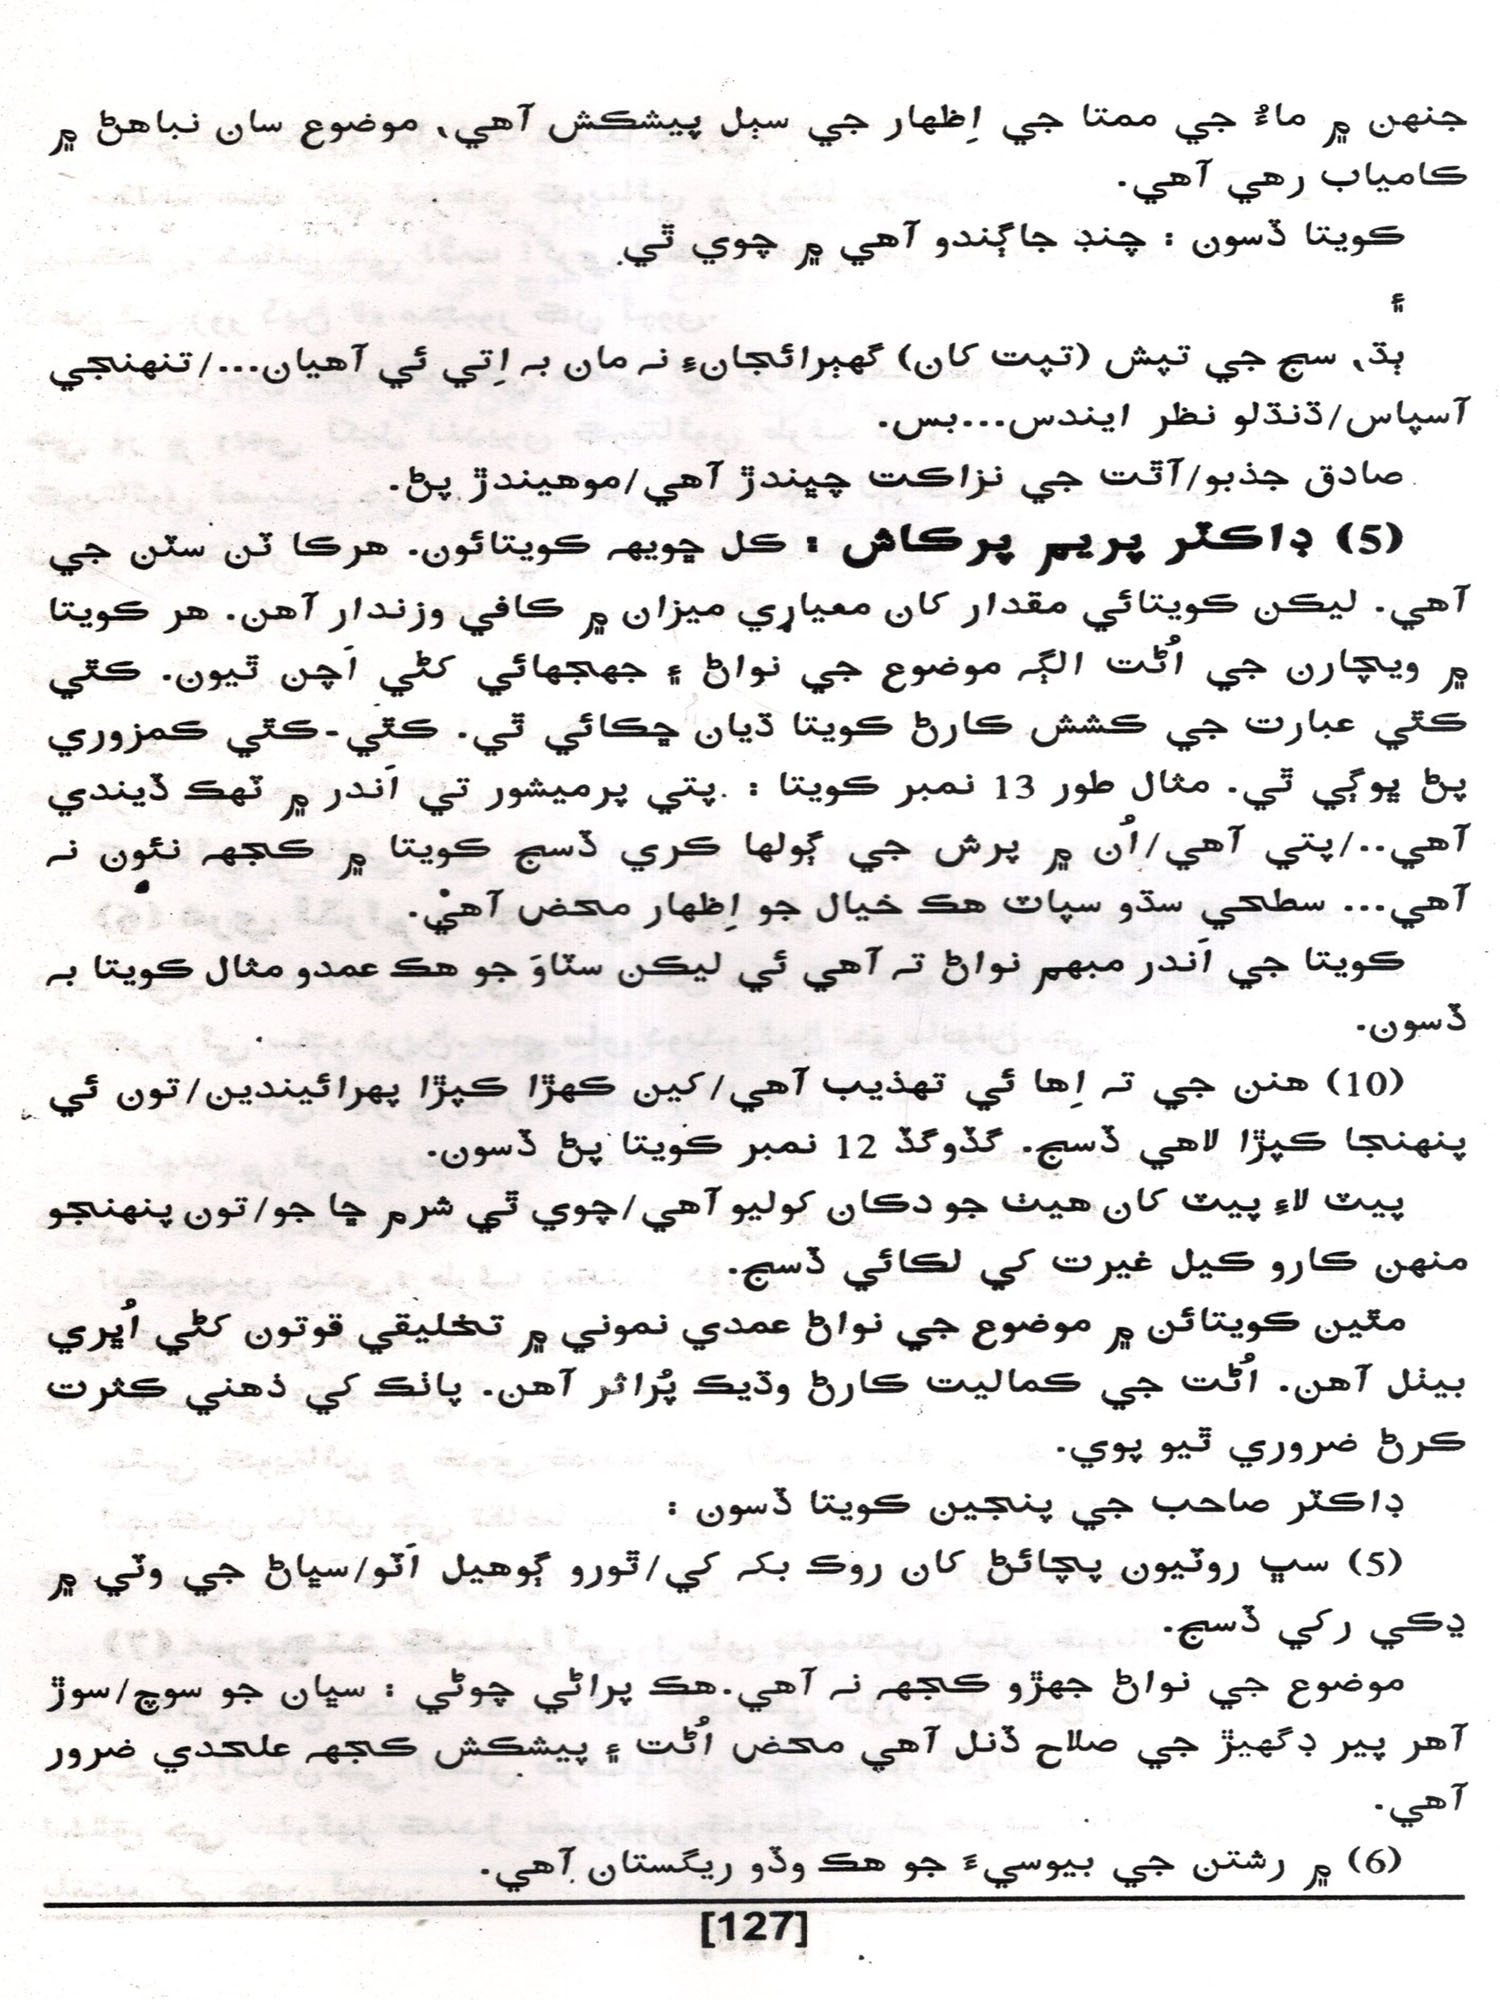 جنهن ۾ ماءُ جي ممتا جي اِظهار جي سٻل پيشڪش آهي، موضوع سان نباهڻ ۾
ڪامياب رهي آهي.
ڪويتا ڏسون : چنڊ جاڳندو آهي ۾ چوي ٿي.
۽
ٻڌ، سج جي تپش (تپت کان) گهٻرائجانءِ نہ مان بہ اِتي ئي آهيان.../تنهنجي
آسپاس/ڌنڌلو نظر ايندس...بس.
صادق جذبو/آٿت جي نزاڪت ڇهندڙ آهي/موهيندڙ پڻ.
(5) ڊاڪٽر پريم پرڪاش : ڪل ڇويهہ ڪويتائون. هرڪا ٽن سٽن جي
آهي. ليڪن ڪويتائي مقدار کان معياري ميزان ۾ ڪافي وزندار آهن. هر ڪويتا
۾ ويچارن جي اُڻت الڳہ موضوع جي نواڻ ۽ جهجهائي کڻي اَچن ٿيون. ڪٿي
ڪٿي عبارت جي ڪشش ڪارڻ ڪويتا ڌيان ڇڪائي ٿي. ڪٿي-ڪٿي ڪمزوري
پڻ ڀوڳي ٿي. مثال طور 13 نمبر ڪويتا : پتي پرميشور تي اَندر ۾ ٽهڪ ڏيندي
آهي../پتي آهي/اُن ۾ پرش جي ڳولها ڪري ڏسج ڪويتا ۾ ڪجهہ نئون نہ
آهي... سطحي سڌو سپاٽ هڪ خيال جو اِظهار محض آهي.
ڪويتا جي اَندر مبهم نواڻ تہ آهي ئي ليڪن سٽاوَ جو هڪ عمدو مثال ڪويتا بہ
ڏسون.
(10) هنن جي تہ اِها ئي تهذيب آهي/کين ڪهڙا ڪپڙا پهرائيندين/تون ئي
پنهنجا ڪپڙا لاهي ڏسج. گڏوگڏ 12 نمبر ڪويتا پڻ ڏسون.
پيٽ لاءِ پيٽ کان هيٺ جو دڪان کوليو آهي/چوي ٿي شرم ڇا جو/تون پنهنجو
منهن ڪارو ڪيل غيرت کي لڪائي ڏسج.
مٿين ڪويتائن ۾ موضوع جي نواڻ عمدي نموني ۾ تخليقي قوتون کڻي اُڀري
بيٺل آهن. اُڻت جي ڪماليت ڪارڻ وڌيڪ پُراثر آهن. پاٺڪ کي ذهني ڪثرت
ڪرڻ ضروري ٿيو پوي.
ڊاڪٽر صاحب جي پنجين ڪويتا ڏسون :
(5) سڀ روٽيون پچائڻ کان روڪ بکہ کي/ٿورو ڳوهيل اَٽو/سڀاڻ جي وٽي ۾
ڍڪي رکي ڏسج.
موضوع جي نواڻ جهڙو ڪجهہ نہ آهي. هڪ پراڻي چوڻي : سڀان جو سوچ/سوڙ
آهر پير ڊگهيڙ جي صلاح ڏنل آهي محض اُڻت ۽ پيشڪش ڪجهہ علحدي ضرور
آهي.
(6) ۾ رشتن جي بيوسيءَ جو هڪ وڏو ريگستان آهي.
[127]